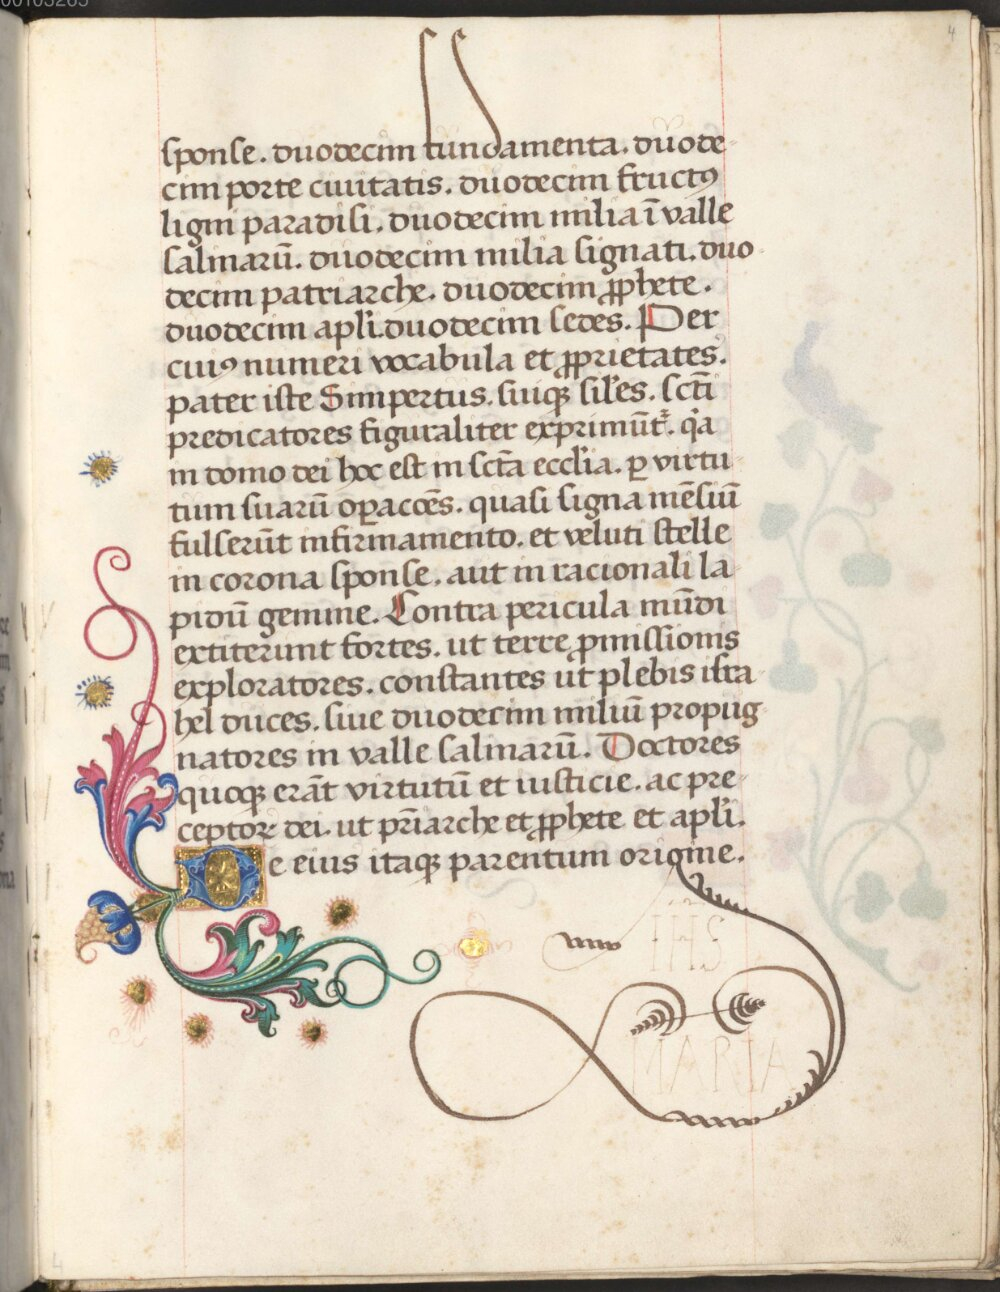 00103265
4
sponse. duodecim fundamenta. duode-
cim porte ciuitatis. duodecim fructꝰ
ligni paradisi. duodecim milia ī valle
salinarū. duodecim milia signati. duo-
decim patriarche. duodecim ꝓphete.
duodecim apl̄i. duodecim sedes. Per
cuiꝰ numeri vocabula et ꝓprietates.
pater iste Simpertus. suiqꝫ sil̄es. sc̄ti
predicatores figuraliter exprimūt᷑. qͥa
in domo dei hoc est in sc̄ta eccl̄ia. ꝑ virtu-
tum suarū oꝑac̄oēs. quasi signa mēsiū
fulserūt infirmamento. et veluti stelle
in corona sponse. aut in racionali la-
pidū gemme. Contra pericula mūdi
extiterunt fortes. ut terre ꝓmissionis
exploratores. constantes ut plebis isra-
hel duces. siue duodecim miliū propug-
natores in valle salinarū. Doctores
quoqꝫ erāt virtutū et iusticie. ac pre-
ceptoꝝ dei. ut pr̄iarche et ꝓphete et apl̄i.
De eius itaqꝫ parentum origine.
IHS
MARIA
4